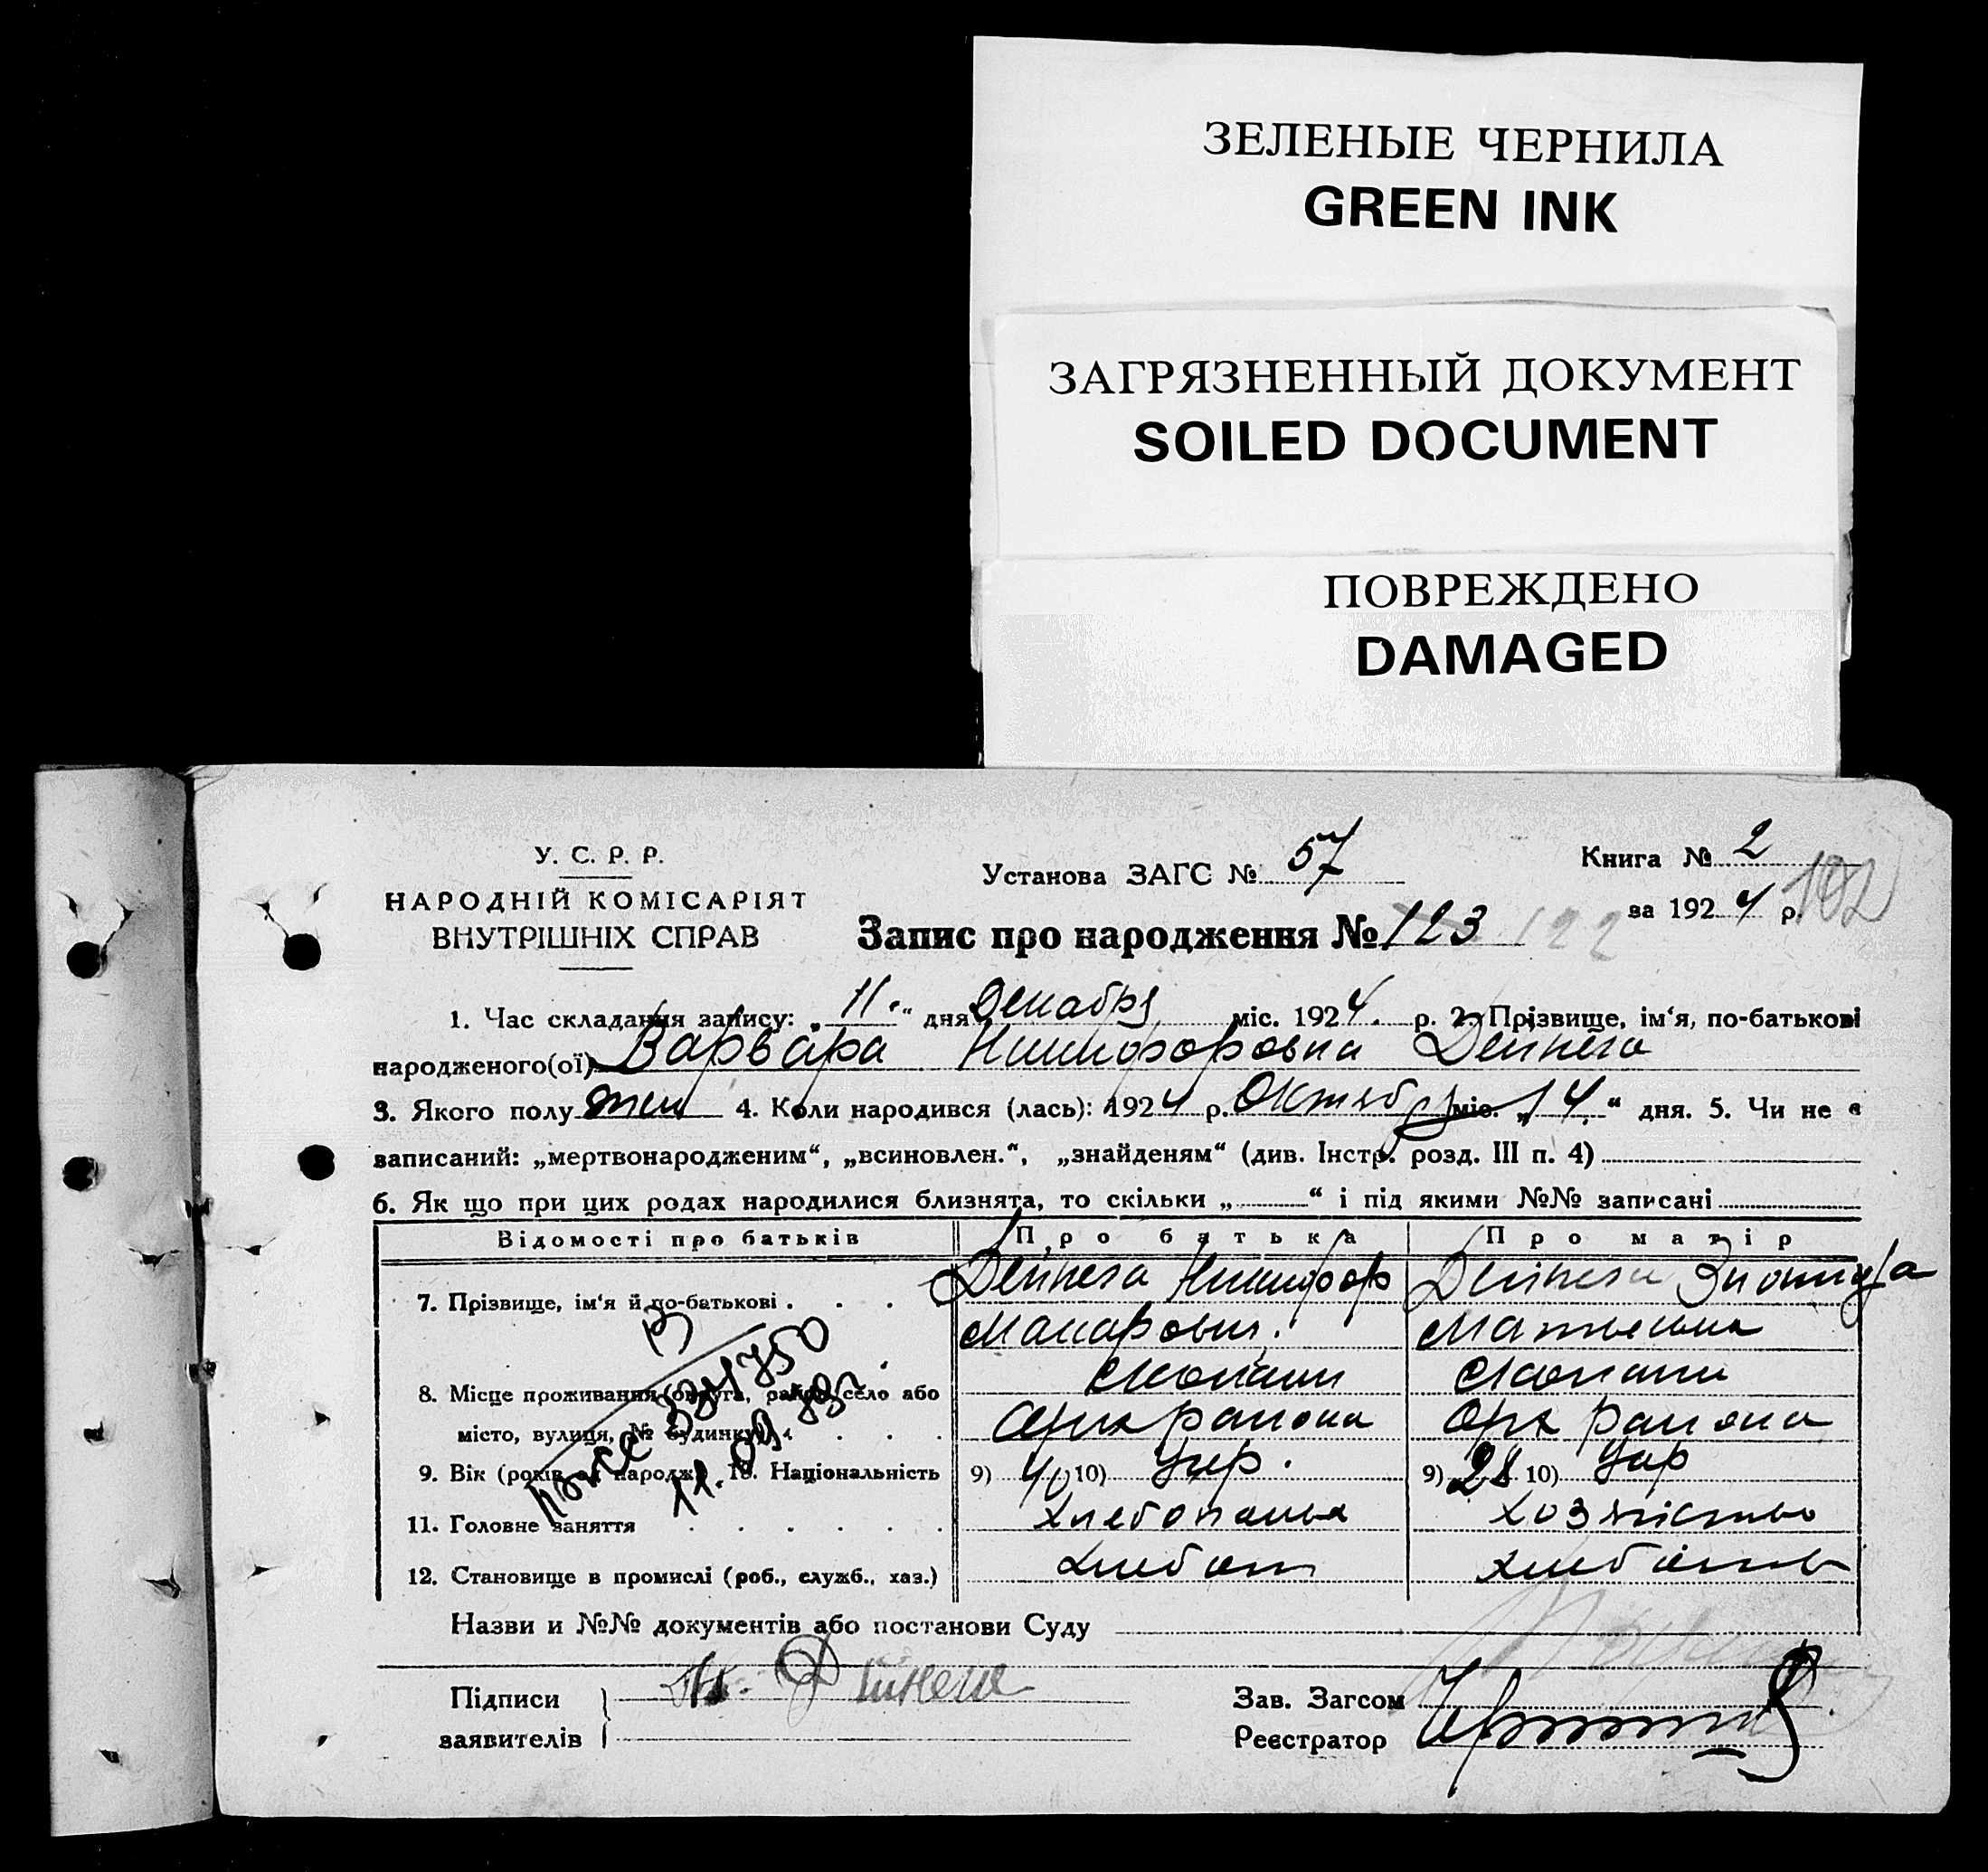 ЗЕЛЕНЫЕ ЧЕРНИЛА
GREEN INK
ЗАГРЯЗНЕННЫЙ ДОКУМЕНТ
SOILED DOCUMENT
ПОВРЕЖДЕНО
DAMAGED
У. С. Р. Р.
НАРОДНІЙ КОМІСАРІЯТ
ВНУТРІШНІХ СПРАВ
Установа ЗАГС № 57
Книга № 2
за 1924 р. 102
Запис про народження № 123 122
1. Час складання запису: „11.“ дня Декабря міс. 1924. р. 2. Прізвище, ім‘я, по-батькові
народженого(ої) Варвара Никифоровна Дейнега
3. Якого полу жен 4. Коли народився (лась): 1924 р. Октября міс. „14.“ дня. 5. Чи не є
записаний: „мертвонародженим“, „всиновлен.“, „знайденям“ (див. Інстр. розд. III п. 4)
6. Як що при цих родах народилися близнята, то скільки „ “ і під якими №№ записані
Відомості про батьків Про батька Про матір
7. Прізвище, ім‘я й по-батькові . . . . Дейнега Никифор Дейнега
Макарович. Матвеевна
8. Місце проживання (округа, район, село або Копани Копани
місто, вулиця, № будинку) . . . . Орех района Орех района
9. Вік (років од народж.) 10. Національність 9) 40 10) Укр. 9) 28 10) Укр
11. Головне заняття . . . . . . Хлебопашец хозяйство
12. Становище в промислі (роб., служб., хаз.)
334750
11.09
Назви и №№ документів або постанови Суду
Підписи Дейнега
заявителів
Зав. Загсом
Реєстратор